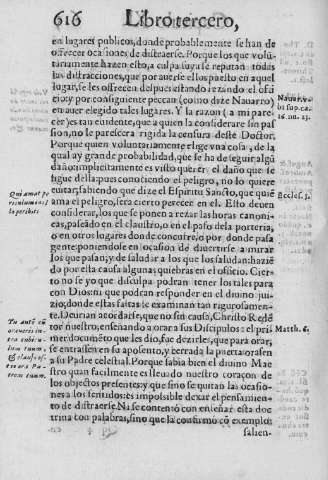 616 Libro tercero,
en lugares publicos, donde probablemente se han de
ofrecer ocasiones de distraerse. Porque los que volũ-
tariamente hazen esto, a culpa suya se reputan todas
las distracciones, que por auerse ellos puesto en aquel
lugar, se les ofrecen despues estando rezando el offi-
cio: y por consiguiente peccan (como dize Nauarro)
en auer elegido tales lugares. Y la razon (a mi pare-
cer) es tan euidente, que a quien la considerare sin pas
sion, no le parescera rigida la censura deste Doctor.
Porque quien voluntariamente elige vna cosa, de la
qual ay grande probabilidad, que se ha de seguir, algũ
daño, implicitamente es visto querer el daño que se
sigue della: pues conociendo el peligro, no lo quiere
euitar, sabiendo que dize el Espiritu Sancto, que quiẽ
ama el peligro, sera cierto perecer en el. Esto deuen
considerar, los que se ponen a rezar las horas canoni-
cas, paseãdo en el claustro, o en el paso dela porteria,
o en otros lugares donde concurre, o por donde pasa
gente: poniendose en ocasion de diuertirse a mirar
los que pasan; y de saludar a los que los saludan: haziẽ
do por ella causa algunas quiebras en el officio. Cier-
to no se yo que disculpa podran tener los tales para
con Dios: ni que podran responder en el diuino juy-
zio, donde estas faltas se examinan tan rigurosamen-
te. Deurian acordarse, que no sin causa, Christo Redẽ
tor nuestro, enseñando a orar a sus Discipulos: el pri
mer documẽto que les dio, fue dezirles, que para orar,
se entrassen en su aposento, y cerrada la puerta orasen
a su Padre celestial. Porque sabia bien el diuino Mae
stro quan facilmente es lleuado nuestro coraçon de
los objectos presentes: y que sino se quitan las ocasio-
nes a los sentidos: es impossible dexar el pensamien-
to de distraerse. Na se contentò con enseñar esta doc
trina con palabras, sino que la confirmo cõ exemplo:
salien-
Nauar. vbi sup. cap.
16. nu. 23.
Qui amat pe
riculum in il
lo peribit.
Eccles. 3.
Tu autẽ cũ
oraueris in-
tra cubicu-
lum tuum:
& clauso os-
tio ora Pa-
trem tuum.
Matth. 6.